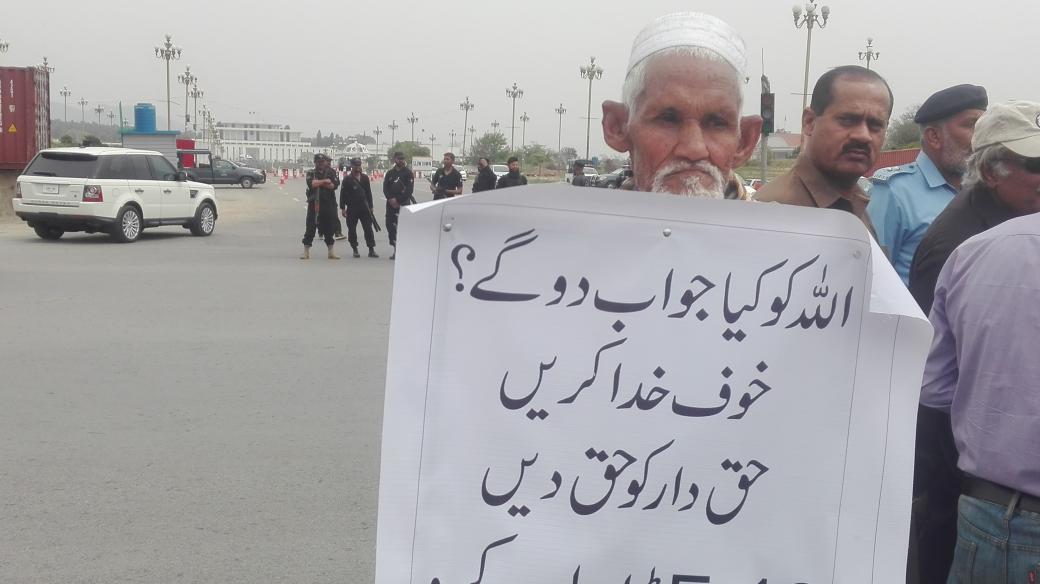 اللہ کو کیا جواب دو گے؟
خوف خدا کریں
حق دار کو حق دیں